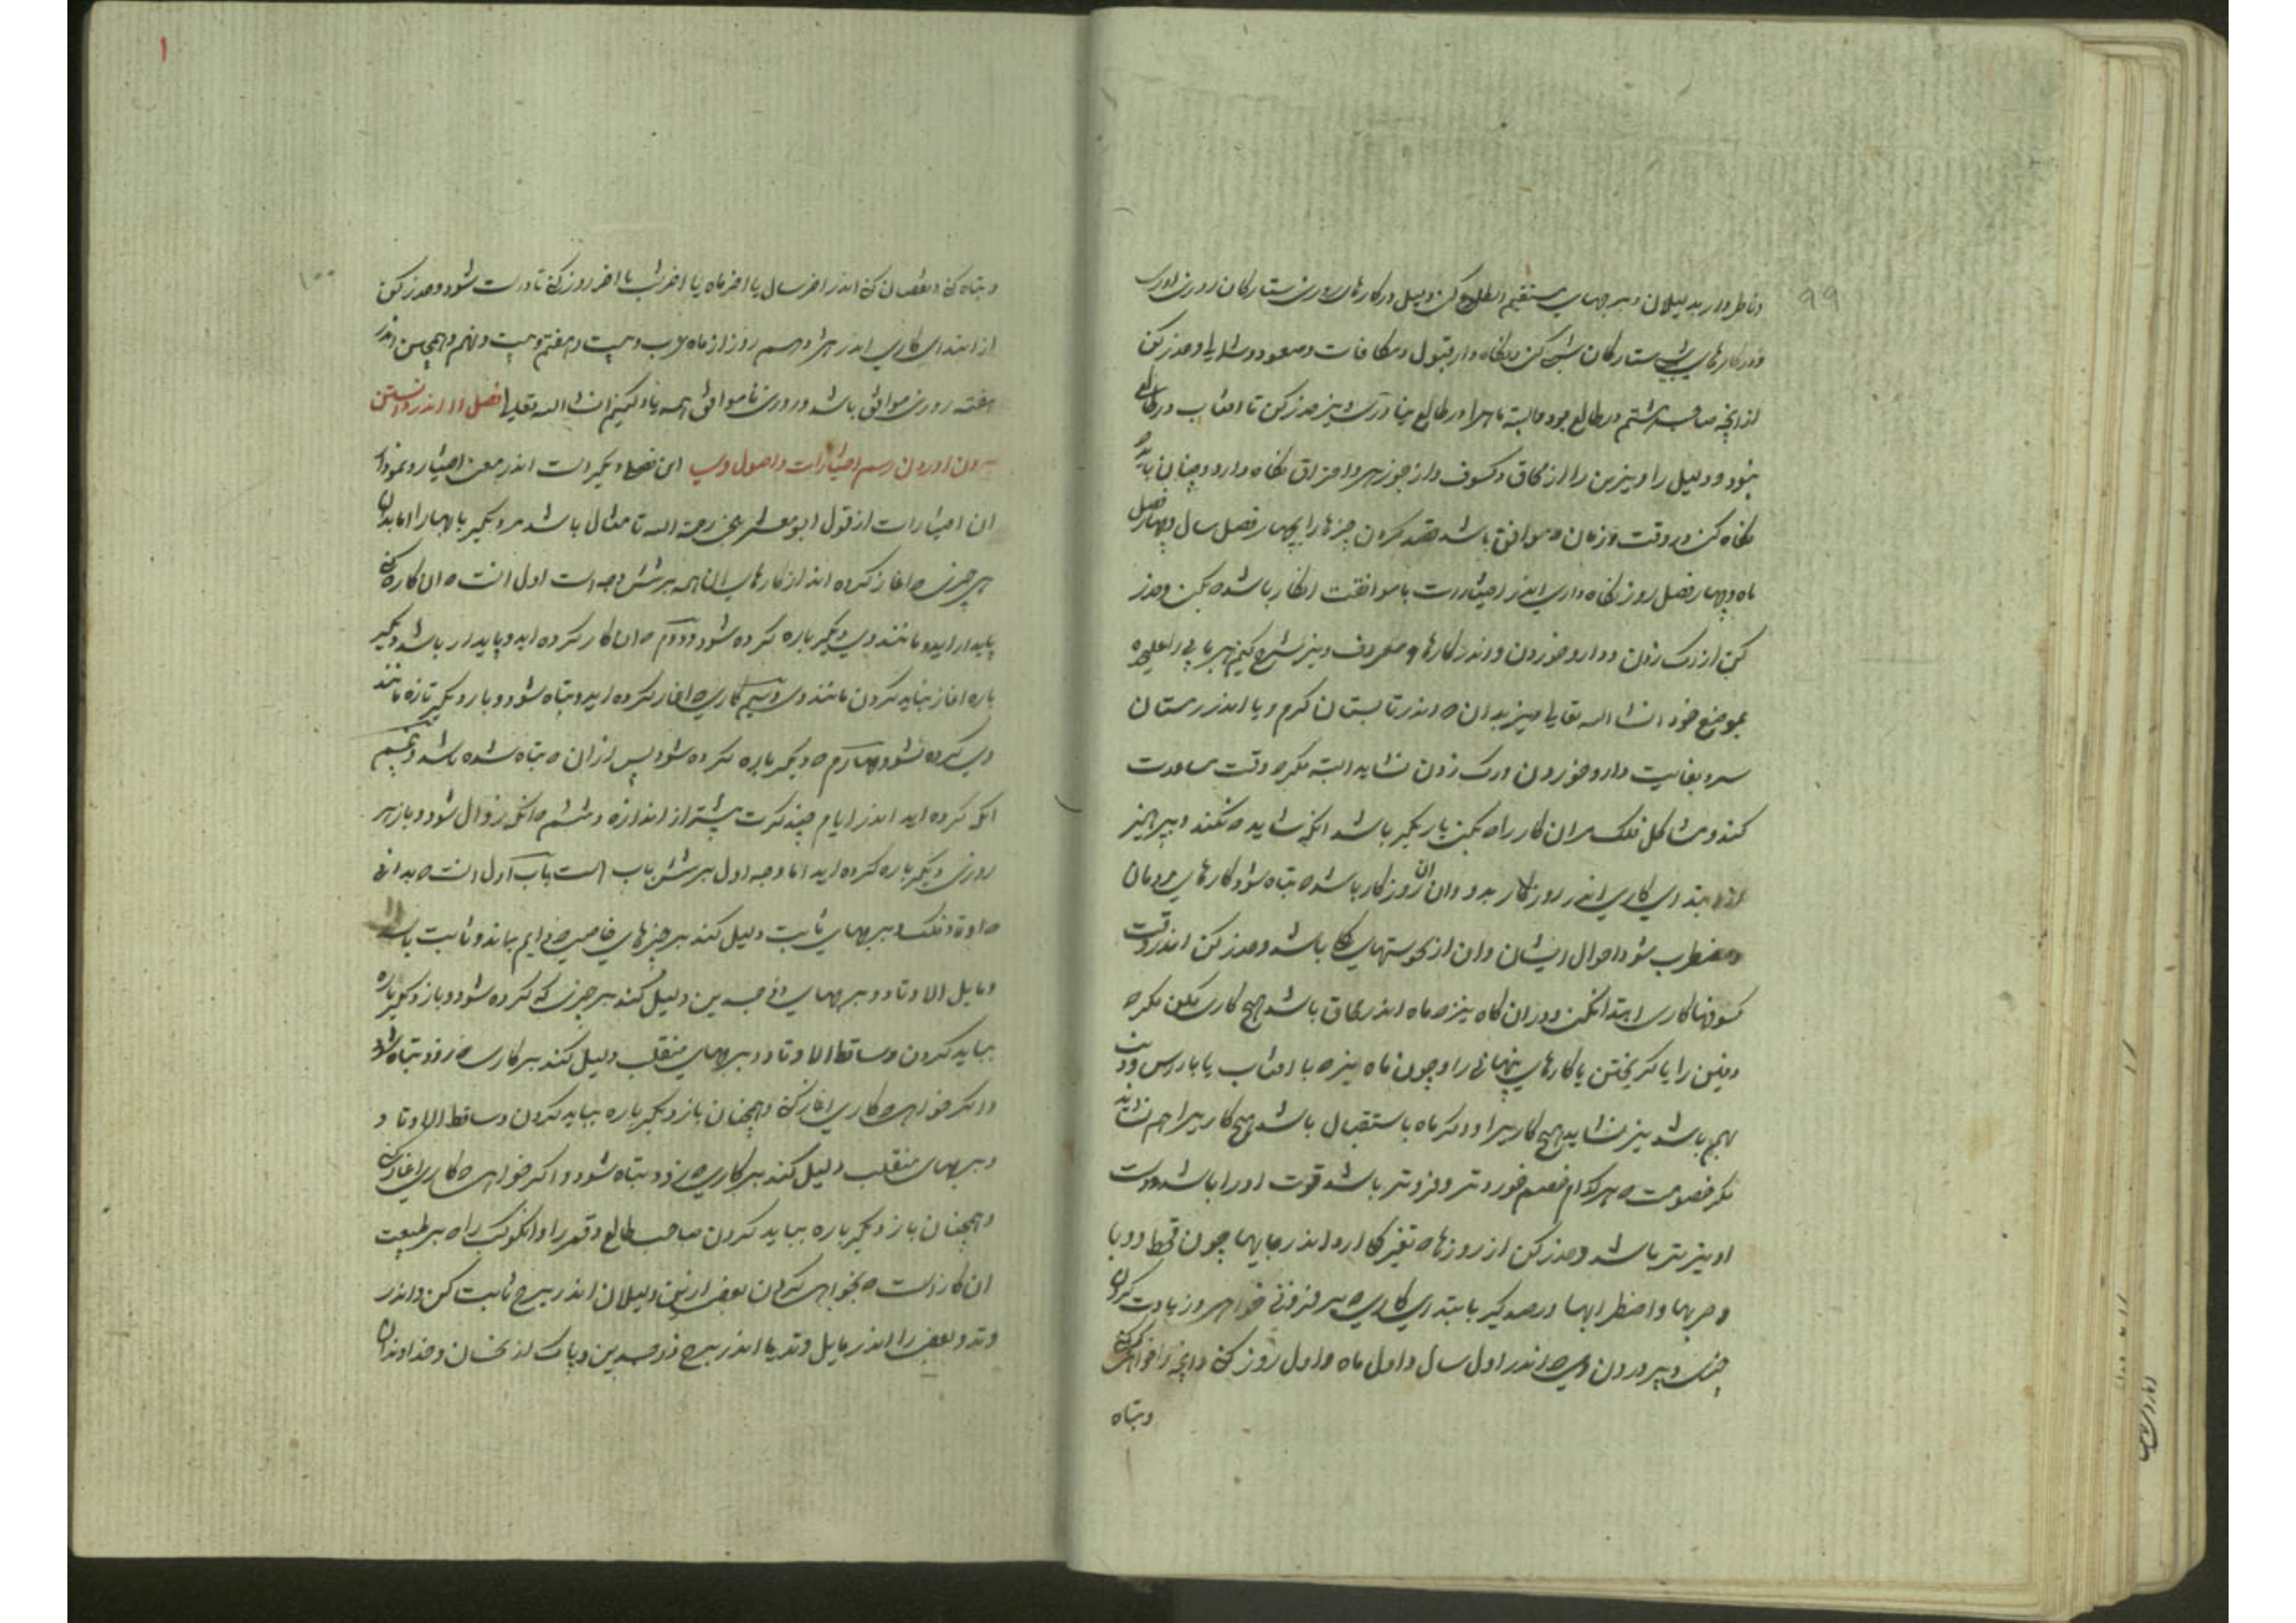 ۹۹
و ناظر دار بدلیلان و ببرجهای مستقیم الطلوع کن دلیل در کارهای روزی ستارگان روزی اورب
و در کارهای شبی ستارگان شبی کن و نگاه دار قبول و مکافات و صعود و مانند و حذر کن
از انچه صاحب هشتم در طالع بود و البته ماه را در طالع و نیز حذر کن تا افتاب در طالع
نبود و دلیل را و نیرین را از محاق و کسوف و از جوزهر و احتراق نگاه دار و چنان باید
نگاه کن در وقت و زمان ه موافق باشد قصد کردن چیزها را بچهار فصل سال و چهار فصل
ماه و چهار فصل روز نگاه داری اندر اختیارات با موافقت انکار باشد ه بکن و حذر
کن از رک زدن و دارو خوردن و اندر کارهای معروف و نیز شرح کنیم هر بابی را علیحده
بموضع خود انشا الله تعالی و نیز بدان ه اندر تابستان گرم و یا اندر زمستان
سرد بغایت دارو خوردن و رک زدن نشاید البته مگر ه وقت مساعدت
کند و مشاکل فلک مر ان کار را ه بکن یار بگیر باشد انگه شاید ه بکند و بپرهیز
از ابتدای کاری اندر روزگار بد و ان روزگار باشد ه تباه شود کارهای مردمان
و مضطرب شود احوال ایشان و ان از نحوستهای باشد و حذر کن اندر وقت
کسوفها کاری ابتدا نکن و در ان گاه نیز ه ماه اندر محاق باشد هیچ کاری مکن مگر ه
دفین را یا گریختن یا کارهای پنهانی را و چون ماه نیز ه با افتاب یا با راس و ذنب
بهم باشد نیز نشاید هیچ کاریرا و اگر ماه باستقبال باشد هیچ کاریرا هم نشاید
مگر خصومت ه هر کدام خصم خوردتر و فروتر باشد قوت او را باشد و دست
او نیزتر باشد و حذر کن از روزها ه تغیر کار ارد اندر جایها چون قحط و وبا
و حربها و اضطرابها و رصد گیر بابتدای کاری ه بر فزونی خواهی و زیادت کردن
چیزی و پروردن وی ه اندر اول سال و اول ماه و اول روز کنی و انچه را خواهی کنی
و تباه
۱
۱۰۰
و تباه کنی و نقصان کنی اندر اخر سال یا اخر ماه یا اخر شب یا اخر روز کنی تا درست شود و حذر کن
از ابتدای کاری اندر روز از ماه عرب و بیست و هفتم و بیست و نهم و همچنین اندر
هفته روزی موافق باشد و روزی ناموافق همه یاد کنیم انشا الله تعالی فصل اندر دانستن
بیرون اوردن رسم اختیارات و اصول وی این فصلی دیگر است اندر معنی اختیار و نمودن
ان اختیارات از قول ابو معشر بلخی رحمة الله تا مثال باشد مر دیگر بابها را اما بدان
هر چیزی ه اغاز کرده اند از کارهای ان همه بر شش وجه است اول انست ه ان کار ه کنی
پایدار اید و مانند وی دیگر باره کرده شود و دوم ه ان کار کرده اید و پایدار باشد و دیگر
باره اغاز نباید کردن مانند وی و سیم کاری ه اغاز کرده اید و تباه شود و بار دیگر تازه مانند
وی کرده نشود و چهارم ه دیگر باره کرده شود پس از ان ه تباه شده باشد و پنجم
انک کرده اید اندر ایام چند کرت بیشتر از اندازه و ششم ه انک زوال شود و باز هر
روزی دیگر باره کرده اید اما وجه اول بر شش باب است باب اول انست ه بدانی
ه اوتاد فلک و برجهای ثابت دلیل کند بر چیزهای خاصه ه دایم بماند و ثابت باشد
و مایل الاوتاد و برجهای ذی جسدین دلیل کند بر چیزی که کرده شود و باز دیگر باره
بباید کردن و ساقط الاوتاد و برجهای منقلب دلیل کند بر کاری ه زود تباه شود
و اگر خواهی ه کاری اغاز کنی و همچنان باز دیگر باره بباید کردن و ساقط الاوتاد و
و برجهای منقلب دلیل کند بر کاری ه زود تباه شود و اگر خواهی ه کاری اغاز کنی
و همچنان باز دیگر باره بباید کردن صاحب طالع و قمر را و ان کوکب را ه بر طبیعت
ان کارست ه بخواهی کردن بعضی از این دلیلان اندر برج ثابت کن و اندر
وتد و بعضی را اندر مایل وتد یا اندر برج ذو جسدین و پاک از نحسان و خداوندان